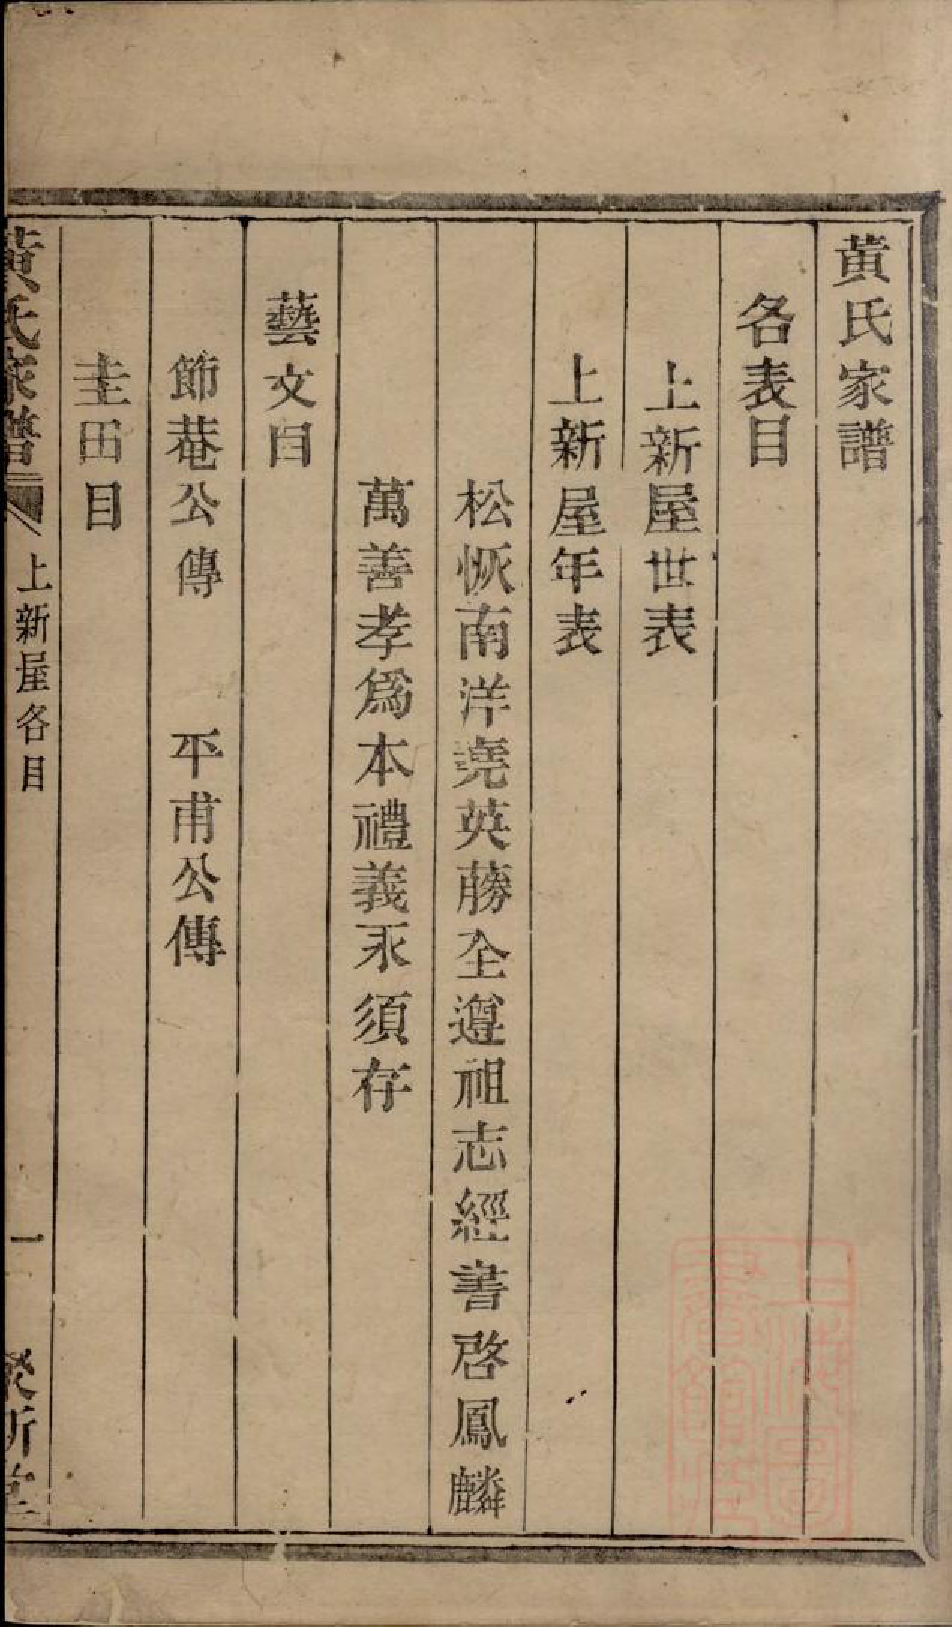 黄氏家譜
各表目
上新屋世表
上新屋年表
松恢南洋堯英蕂全遵祖志經書啓鳳麟
萬善孝爲本禮義永須存
藝文目
節菴公傳　平甫公傳
圭田目
黄氏家譜　上新屋各目　一
上海圖書館藏